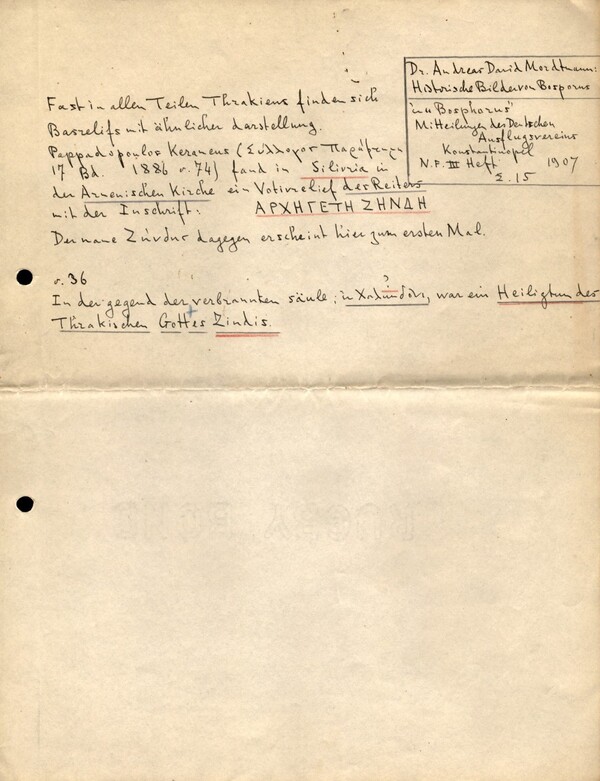 Dr. Andreas David Mordtmann:
Historische Bilder von Bosporus
in "Bosphorus"
Mitteilungen des Deutschen
Ausflugsvereins
Konstantinopel
N.F. III Heft 1907
Σ. 15
Fast in allen Teilen Thrakiens finden sich
Basrelifs mit ähnlicher darstellung.
Pappadopoulos Kerameus (Σύλλογος Παράρτημα
17 Bd. 1886 σ. 74) fand in Silivria in
der Armenischen Kirche ein Votivrelief des Reiters
mit der Inschrift: ΑΡΧΗΓΕΤΗ ΖΗΝΔΗ
Der name dagegen erscheint hier zum ersten Mal.
σ. 36
In der gegend der verbrannten säule, in ?, war ein Heiligtum des
Thrakischen Gottes Zindis.